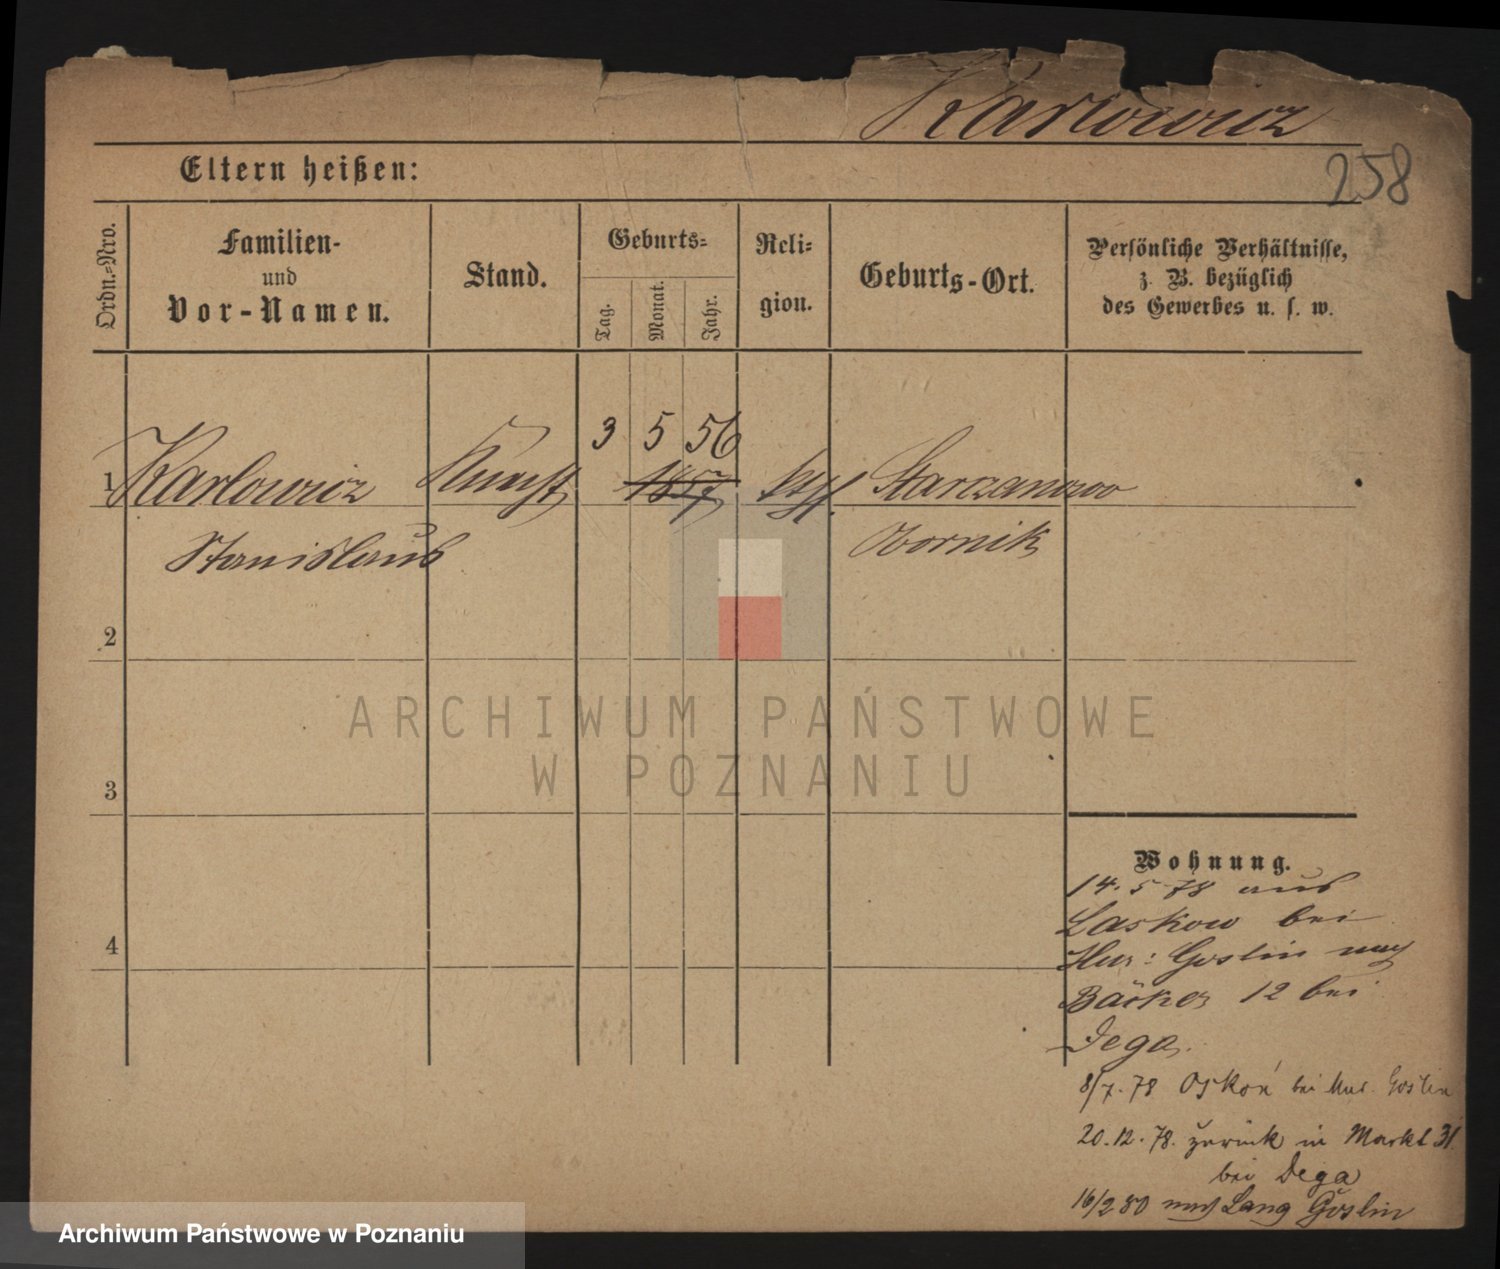 Karlowicz
258
Eltern heißen:
Ordn.=Nro.
Familien-
und
Vor-Namen.
Stand.
Geburts=
Tag.
Monat.
Jahr.
Reli=
gion.
Geburts-Ort.
Persönliche Verhältnisse,
z. B. bezüglich
des Gewerbes u. s. w.
3 5 56
1 Karlowicz 1857 Starczanowo
Stanislaus Obornik
2
3
4
Wohnung.
14. 5 78 aus
Laskow bei
Mur: Goslin nach
Bäcker 12 bei
Dega.
8/7. 78 bei Mur. Goslin
20.12.78. zurück in Markt 31
bei Dega
16/2 80 nach Lang Goslin
ARCHIWUM PAŃSTWOWE
W POZNANIU
Archiwum Państwowe w Poznaniu